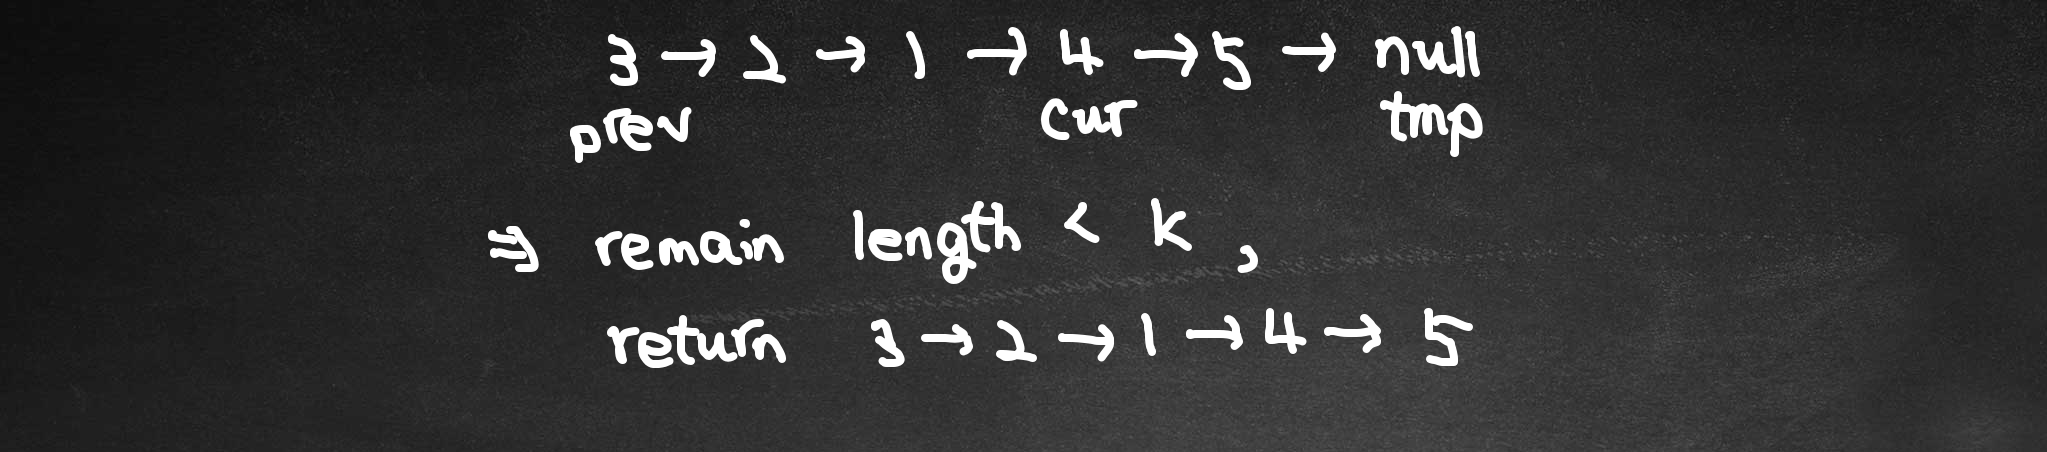 3 → 2 → 1 → 4 → 5 → null
prev cur tmp
⇒ remain length < k,
return 3 → 2 → 1 → 4 → 5